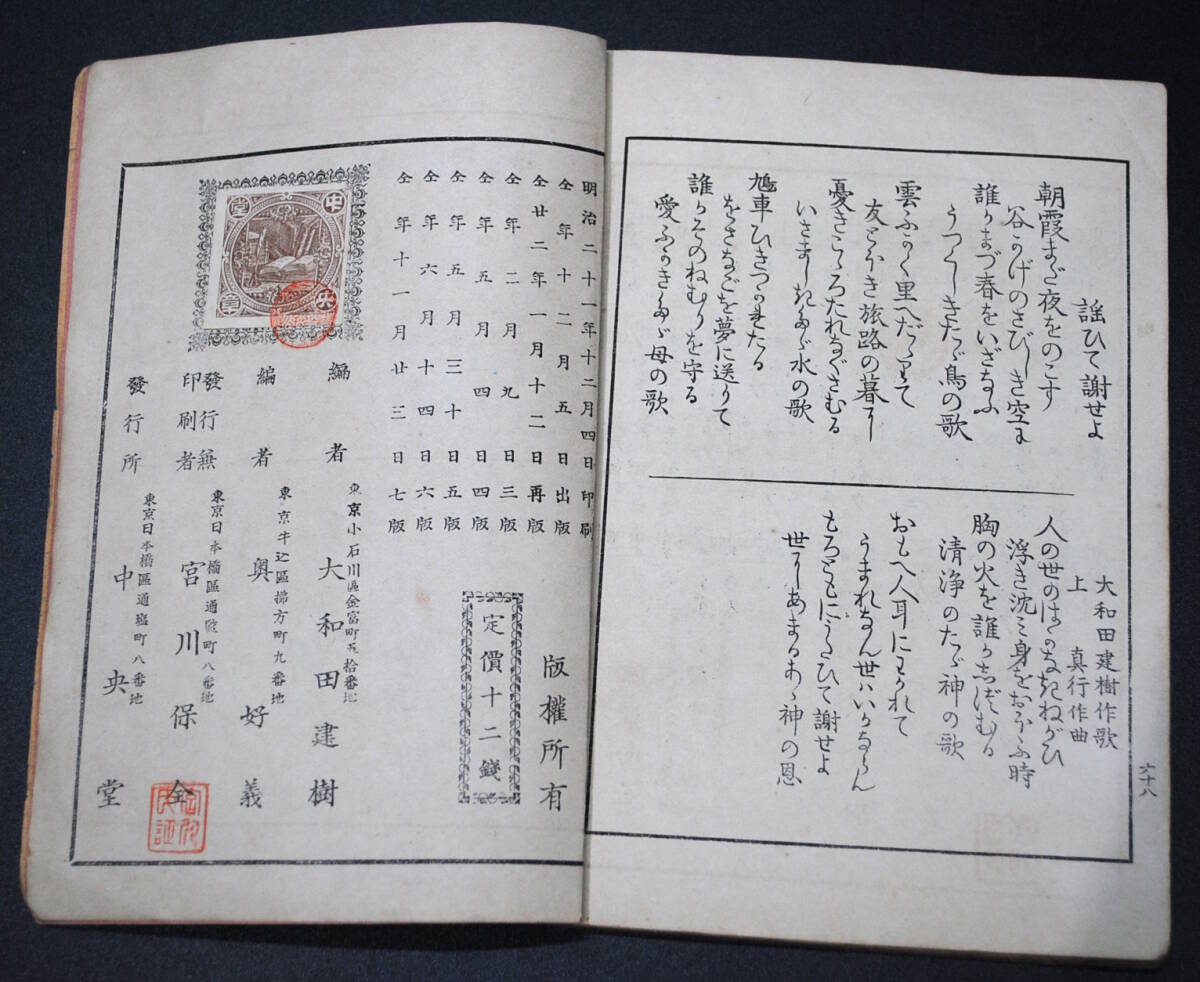 六十八
謡ひて謝せよ
大和田建樹作歌
上 真行作曲
朝霞まだ夜をのこす
谷かげのさびしき空に
誰かまづ春をいざなふ
うつくしきたゞ鳥の歌
雲ふかく里へだゝりて
友とほき旅路の暮に
憂きこゝろたれなぐさむる
いさましきたゞ水の歌
鳩車ひきつかれたる
をさなごを夢に送りて
誰かそのねむりを守る
愛ふかきたゞ母の歌
人の世のはかなきねがひ
浮き沈ミ身をおほふ時
胸の火を誰かしづむる
清浄のたゞ神の歌
おもへ人耳にわかれて
うまれなん世ハいかならん
もろともにうたひて謝せよ
世にあまるあゝ神の恩
明治二十一年十二月四日印刷
仝年十二月五日出版
仝廿二年一月十二日再版
仝年二月九日三版
仝年五月四日四版
仝年五月三十日五版
仝年六月十四日六版
仝年十一月廿三日七版
版權所有
定價十二錢
編者 東京小石川區金富町五拾番地 大和田建樹
編者 東京牛込區拂方町九番地 奥好義
發行兼印刷者 東京日本橋區通町八番地 宮川保全
發行所 東京日本橋區通町八番地 中央堂
中央堂